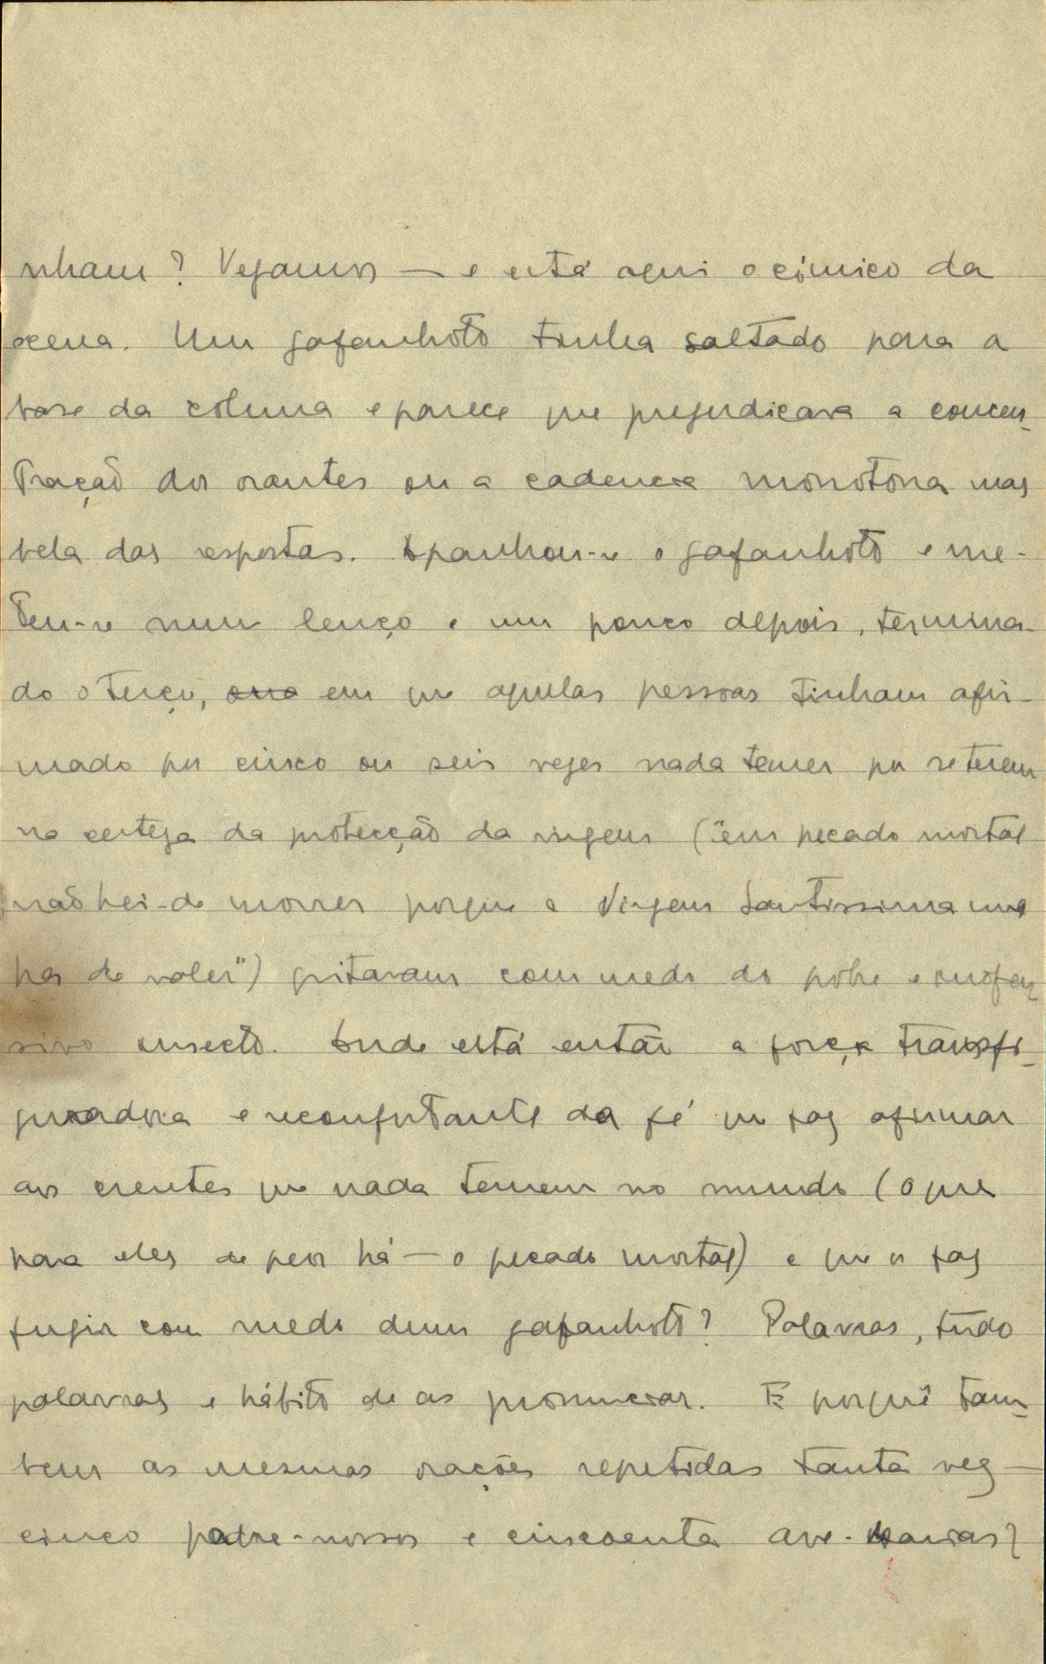 nham? Vejamos — e está aqui o cómico da
cena. Um gafanhoto tinha saltado para a
base da coluna e parece que prejudicava a concen-
tração dos orantes ou a cadencia monotona mas
bela das respostas. Apanhou-se o gafanhoto e me-
teu-se num lenço e um pouco depois, termina-
do o terço, em que aquelas pessoas tinham afir-
mado por cinco ou seis vezes nada temer por se terem
na certeza da protecção da virgem ("em pecado mortal
não hei-de morrer porque a Virgem Santissima me
ha de valer") gritavam com medo do pobre e inofen
sivo insecto. Onde está então a força transfi-
guradora e reconfortante da fé que faz afirmar
aos crentes que nada temem no mundo (o que
para eles de peor há — o pecado mortal) e que os faz
fugir com medo dum gafanhoto? Palavras, tudo
palavras e hábito de as pronunciar. E porquê tam-
bem as mesmas orações repetidas tanta vez —
cinco padre-nossos e cincoenta ave-marias?